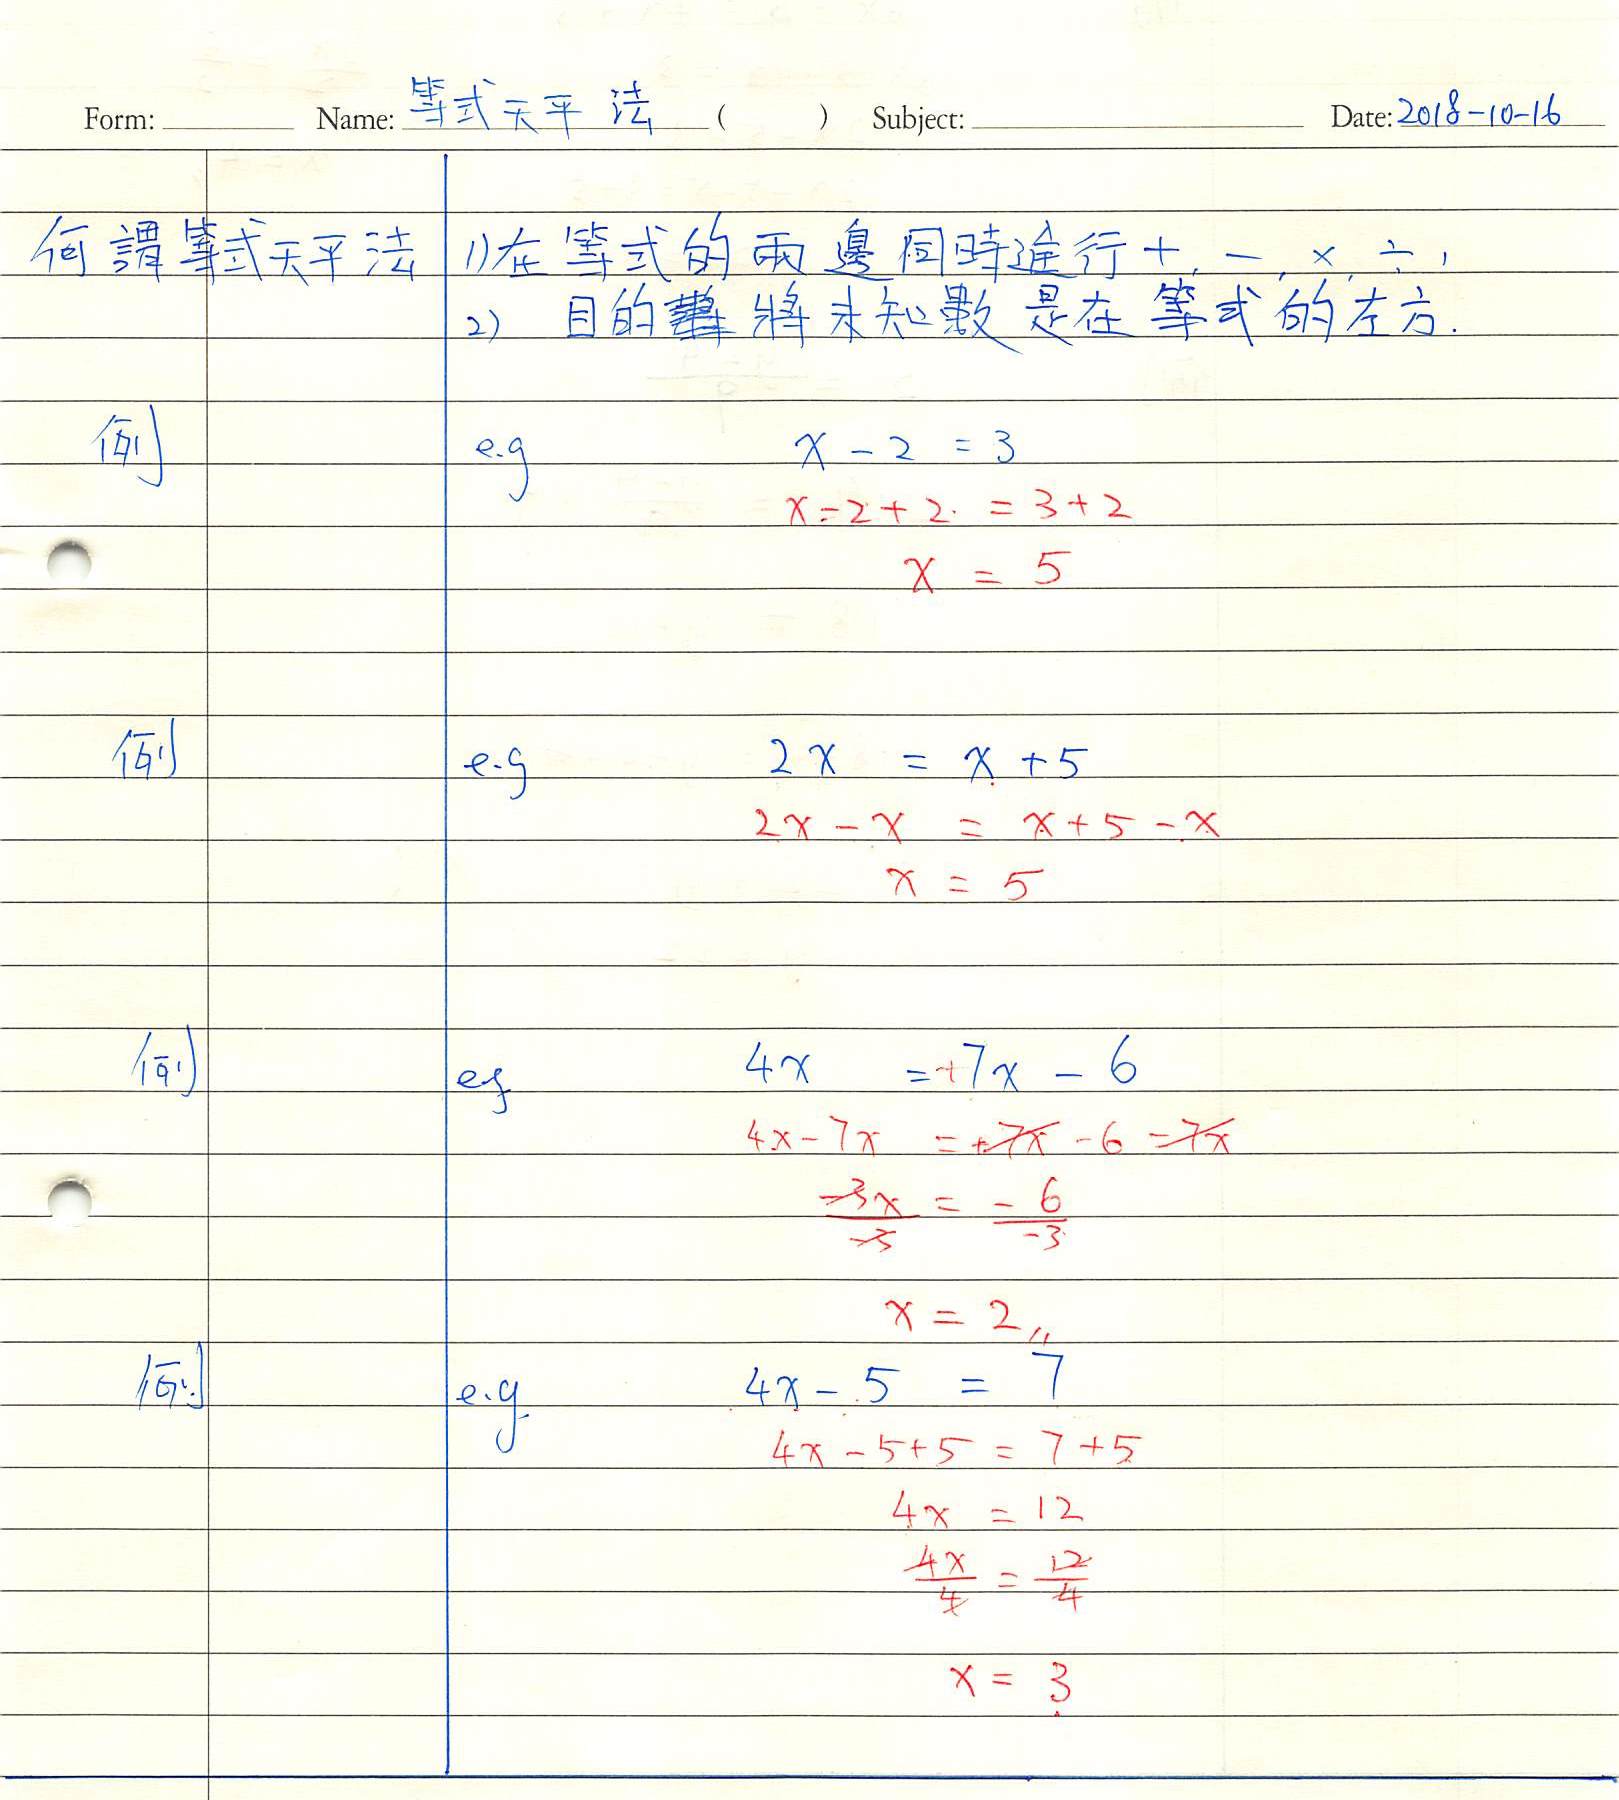 Form: Name: 等式天平法 ( ) Subject: Date: 2018-10-16
何謂等式天平法 1) 在等式的兩邊同時進行 +, -, ×, ÷,
2) 目的 將未知數是在等式的左方.
例 e.g x - 2 = 3
x - 2 + 2 = 3 + 2
x = 5
例 e.g 2x = x + 5
2x - x = x + 5 - x
x = 5
例 eg 4x = +7x - 6
4x - 7x = +7x - 6 - 7x
-3x/-3 = -6/-3
x = 2,,
例 e.g 4x - 5 = 7
4x - 5 + 5 = 7 + 5
4x = 12
4x/4 = 12/4
x = 3